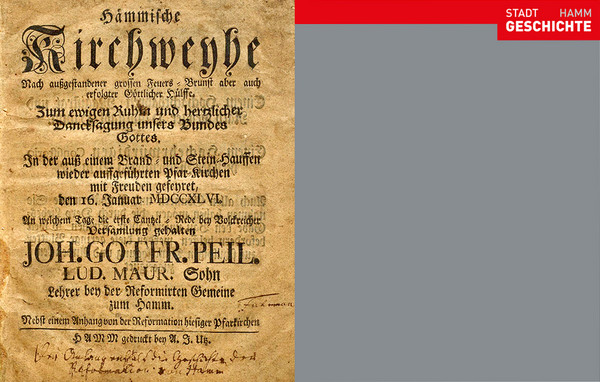 Hämmische
Kirchweyhe
Nach außgestandener grossen Feuers-Brunst aber auch
erfolgter Göttlicher Hülffe.
Zum ewigen Ruhm und hertzlicher
Dancksagung unsers Bundes
Gottes.
In der auß einem Brand- und Stein-Hauffen
wieder auffgeführten Pfar-Kirchen
mit Freuden gefeyret,
den 16. Januar. MDCCXLVI.
An welchem Tage die erste Cantzel-Rede bey Volckreicher
Versamlung gehalten
JOH. GOTFR. PEIL.
LUD. MAUR. Sohn
Lehrer bey der Reformirten Gemeine
zum Hamm.
Nebst einem Anhang von der Reformation hiesiger Pfarkirchen
HAMM gedruckt bey A. J. Utz.
die Geschichte der
Reformation
STADT HAMM
GESCHICHTE